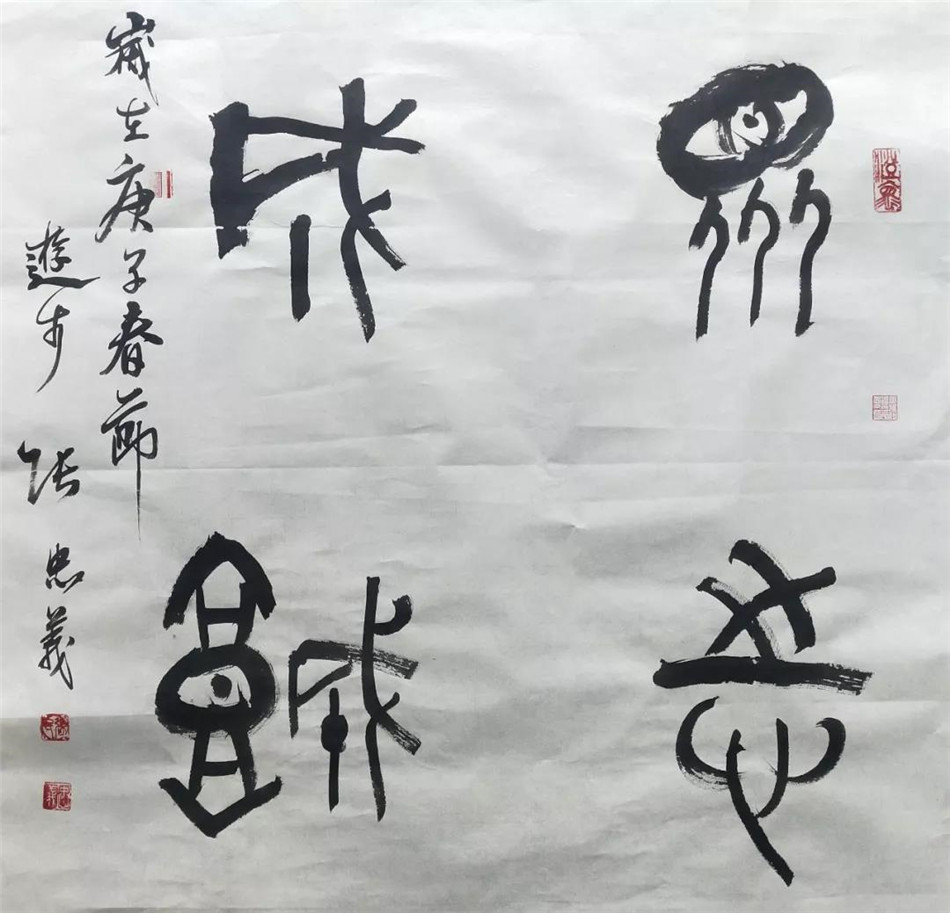 眾志
成城
歲在庚子春節
遊步 张忠義